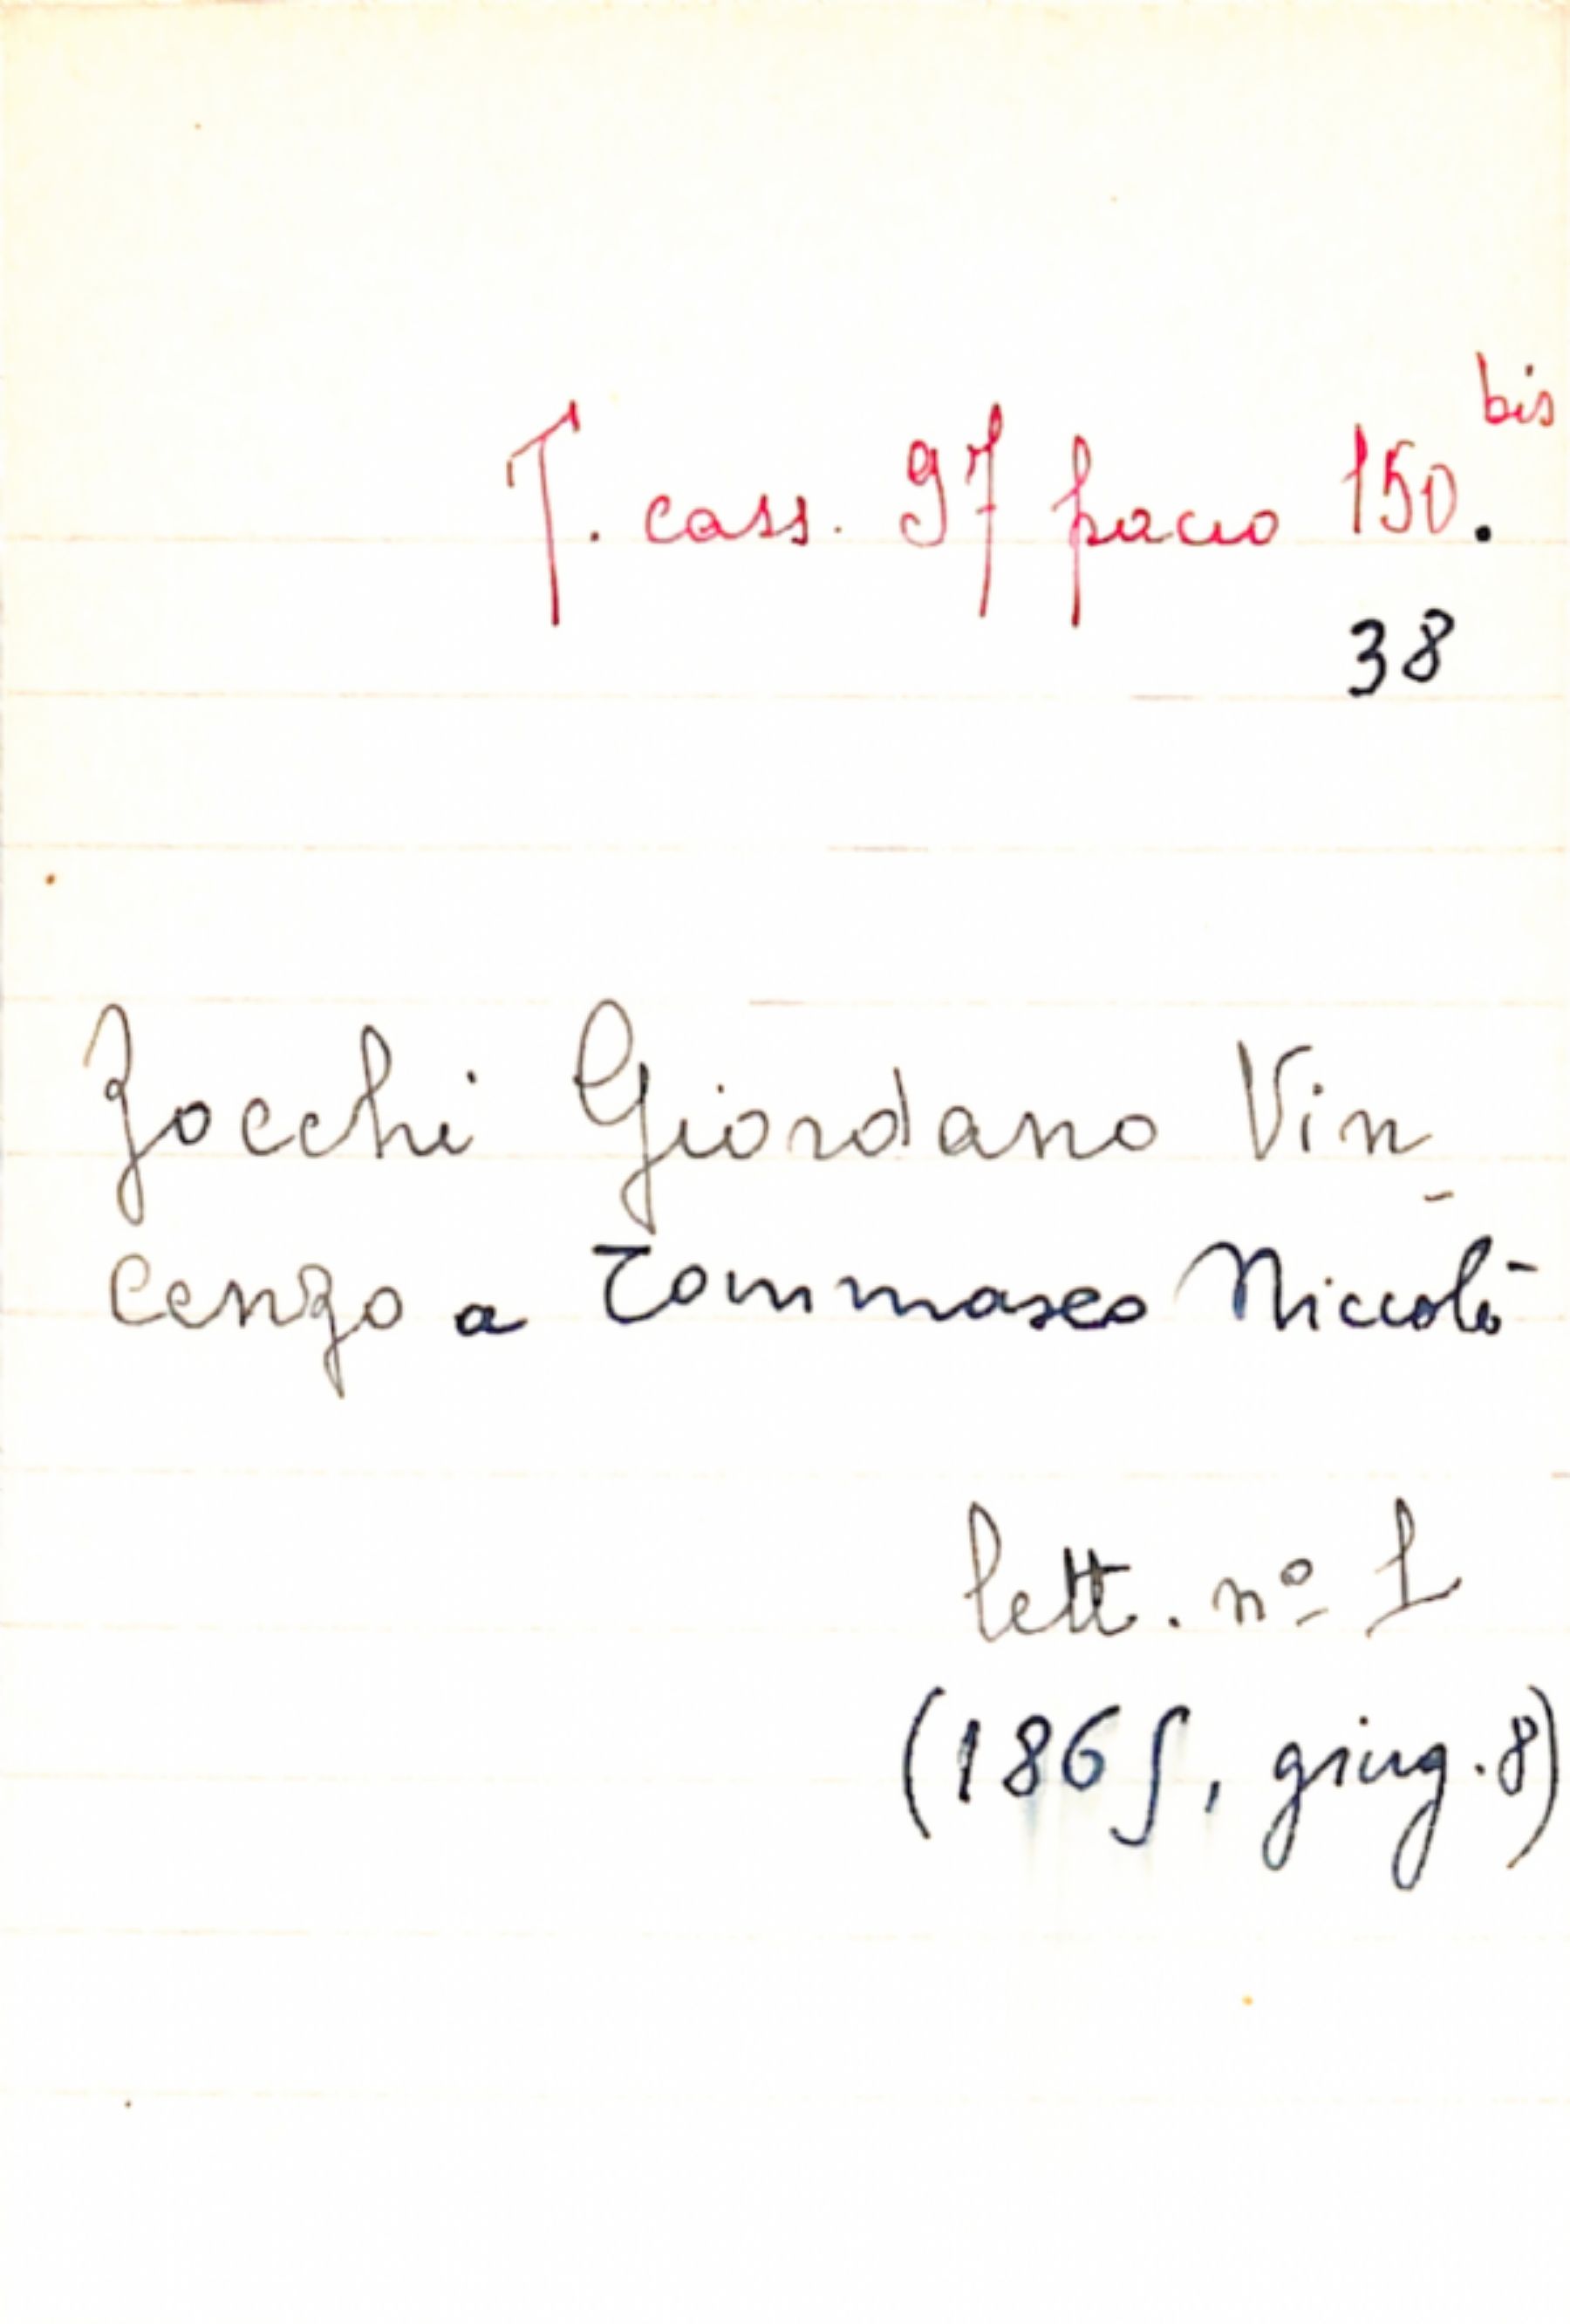 T. cass. 97 pacco 150.bis
38
Zocchi Giordano Vin-
cenzo a Tommaseo Niccolò
lett. nº 1
(1865, giug. 8)